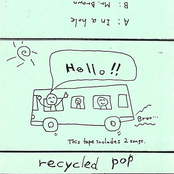 A: In a hole
B: Mr. Brown
Hello!!
Broo...
This tape includes 2 songs.
recycled pop